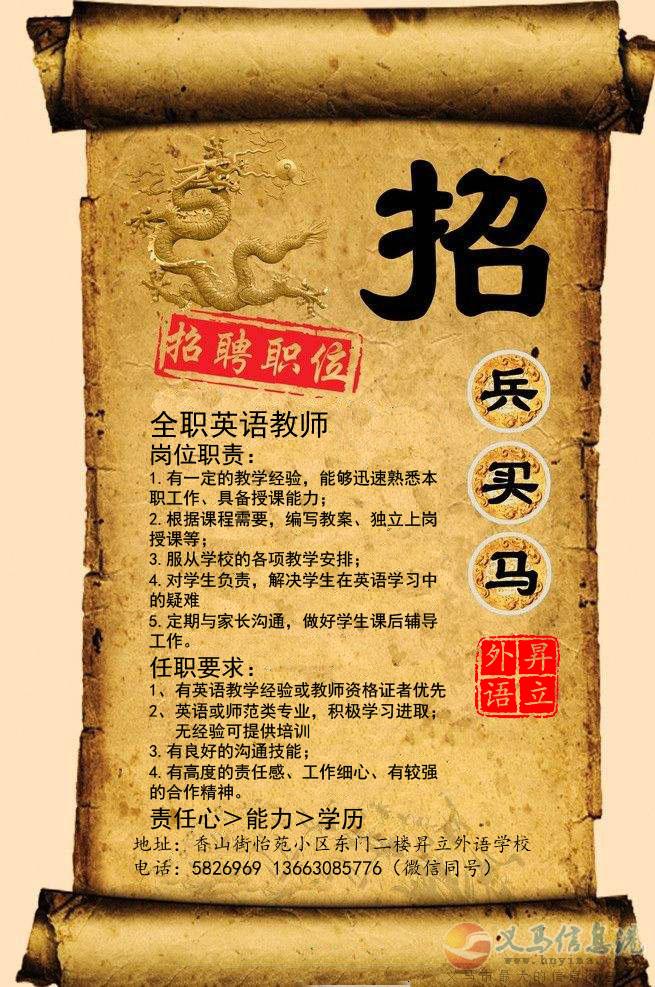 招
兵
买
马
招聘职位
全职英语教师
岗位职责：
1.有一定的教学经验，能够迅速熟悉本
职工作、具备授课能力；
2.根据课程需要，编写教案、独立上岗
授课等；
3.服从学校的各项教学安排；
4.对学生负责，解决学生在英语学习中
的疑难
5.定期与家长沟通，做好学生课后辅导
工作。
任职要求：
1、有英语教学经验或教师资格证者优先
2、英语或师范类专业，积极学习进取；
无经验可提供培训
3.有良好的沟通技能；
4.有高度的责任感、工作细心、有较强
的合作精神。
责任心＞能力＞学历
昇立
外语
地址：香山街怡苑小区东门二楼昇立外语学校
电话：5826969 13663085776（微信同号）
义马信息港
www.hnyima.cn